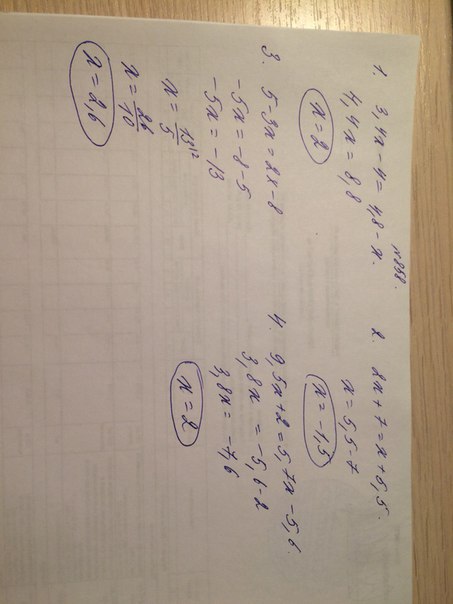 1. 3,4x - 4 = 4,8 - x.
4,4x = 8,8
x = 2
2. 2x + 7 = x + 5,5.
x = 5,5 - 7
x = -1,5
3. 5 - 3x = 2x - 8
-5x = -8 - 5
-5x = -13
x = 13/5 ^{12
x = 26/10
x = 2,6
4. 9,5x + 2 = 5,7x - 5,6.
3,8x = -5,6 - 2
3,8x = -7,6
x = 2